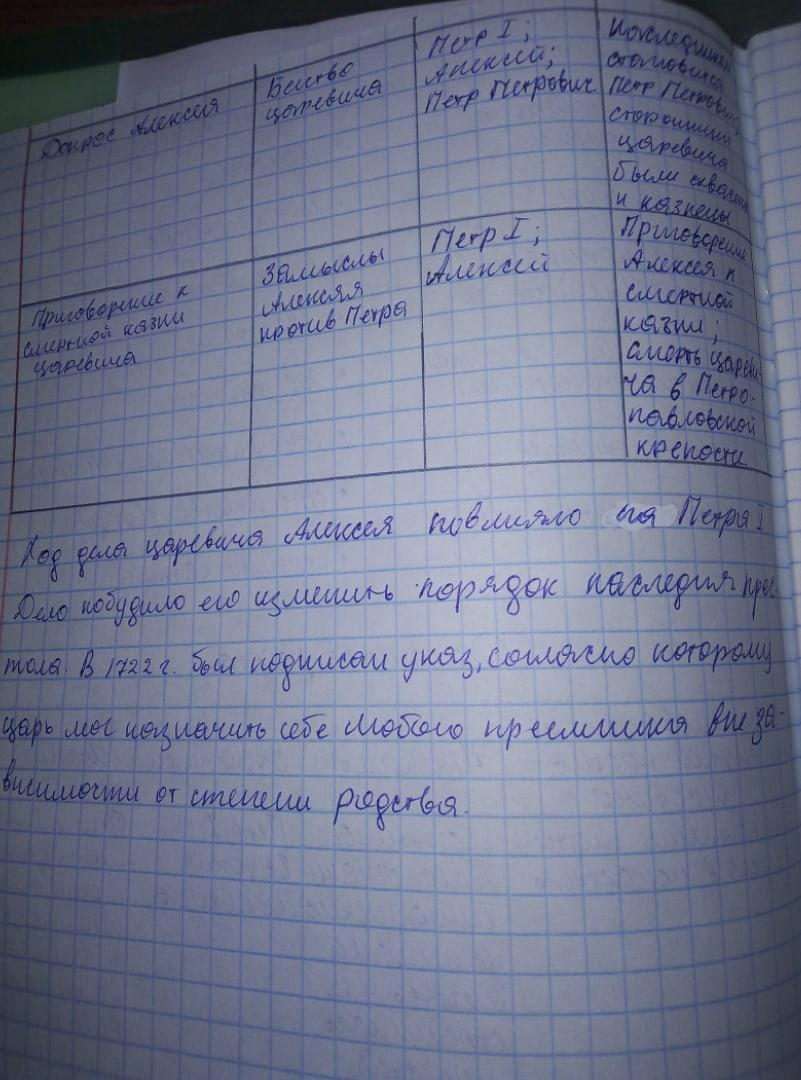 Допрос Алексея
Бегство
царевича
Петр I;
Алексей;
Петр Петрович
Наследником
становится
Петр Петрович,
сторонники
царевича
были схвачены
и казнены
Приговорение к
смертной казни
царевича
Замыслы
Алексея
против Петра
Петр I;
Алексей
Приговорение
Алексея к
смертной
казни;
смерть цареви-
ча в Петро-
павловской
крепости
Ход дела царевича Алексея повлияло на Петра I
Дело побудило его изменить порядок наследия прес-
тола. В 1722 г. был подписан указ, согласно которому
царь мог назначить себе любого преемника вне за-
висимости от степени родства.